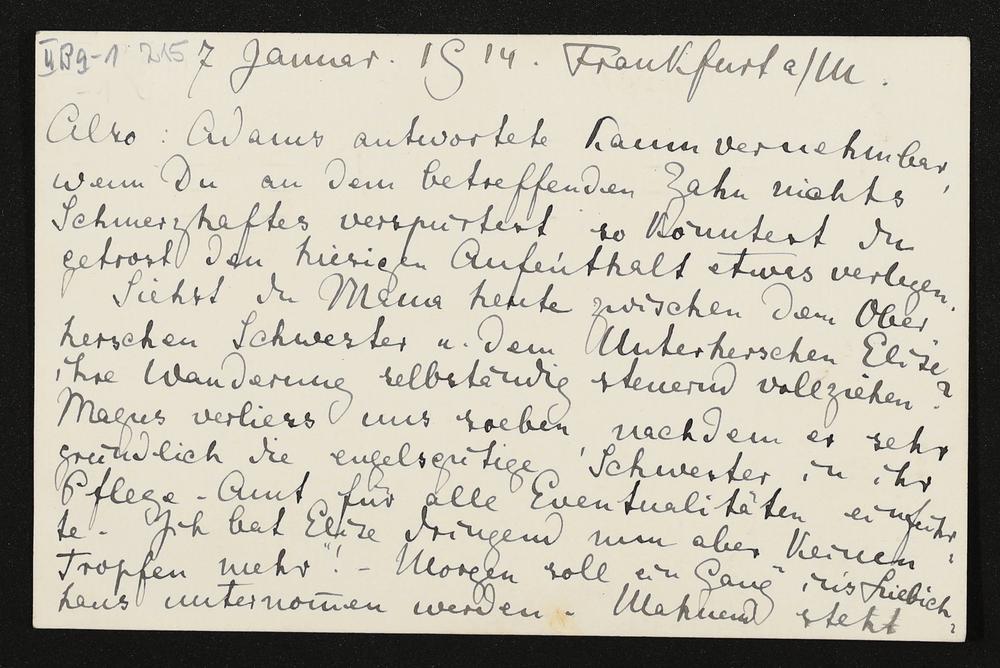 II B9-1 215 7 Januar. 1914. Frankfurt a/M.
Also: Adams antwortete kaum vernehmbar,
wenn Du an dem betreffenden Zahn nichts
Schmerzhaftes verspürtest so könntest du
getrost den hiesigen Aufenthalt etwas verlegen.
Siehst du Mama heute zwischen dem Ober
herschen Schwester u. dem Unterherschen Elise
ihre Wanderung selbständig steuernd vollziehen?
Magus verliess uns soeben, nachdem er sehr
gründlich die engelsgütige Schwester in ihr
Pflege-Amt für alle Eventualitäten einführ-
te. Ich bat Elise dringend nun aber keinen
Tropfen mehr"! - Morgen soll ein Gang in's Liebieg-
haus unternom̄en werden. Mahnend steht